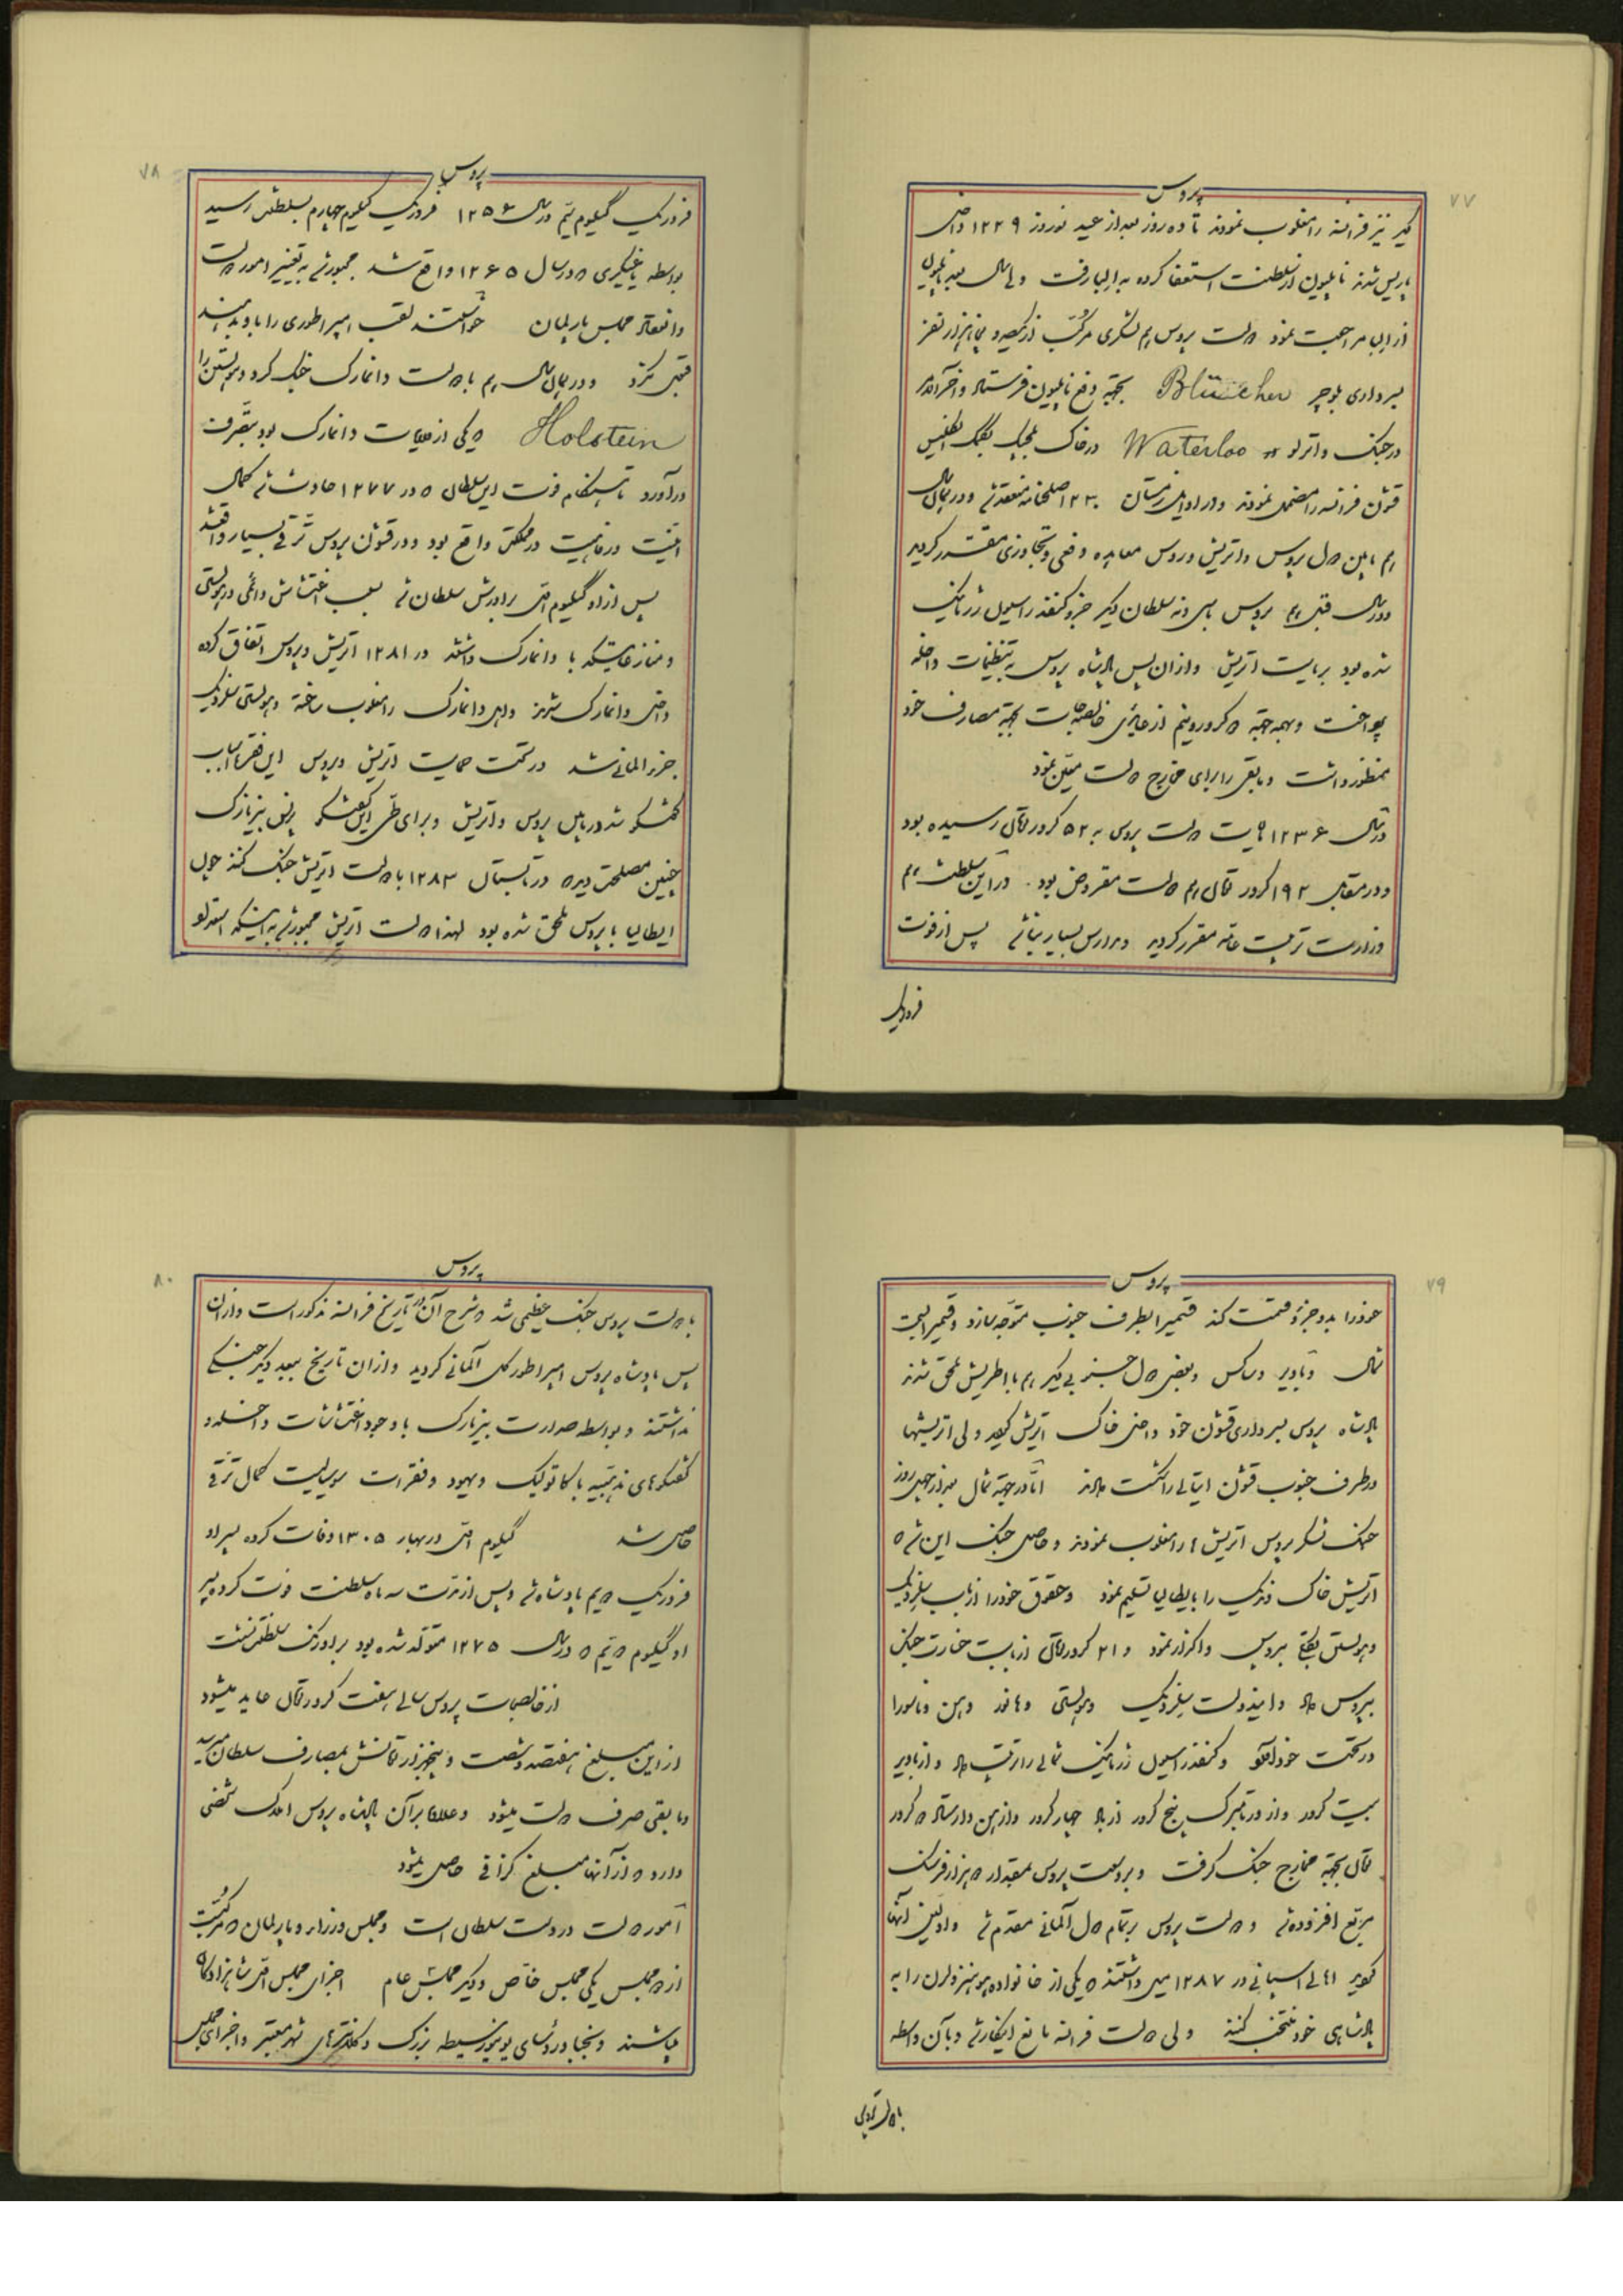 ۷۷
پروس
دیگر نیز فرانسه را مغلوب نمودند تا ده روز بعد از عید نوروز ۱۲۲۹ داخل
پاریس شدند ناپلیون از سلطنت استعفا کرده به البا رفت ولی سال بعد ناپلیون
از البا مراجعت نمود دولت پروس هم لشکری مرکب از یکصد و پنجاه هزار نفر
بسرداری بلوچر Blücher بجهة دفع ناپلیون فرستاد و آخرالامر
در جنگ واترلو Waterloo در خاک بلجیک بکمک انگلیس
قشون فرانسه را مضمحل نمودند و در اوایل زمستان ۱۲۳۰ صلحنامه منعقد شد و در همان سال
هم مابین دول پروس و اتریش و روس معاهده دفعی و تجاوزی مقرر گردید
و در سال قبل هم پروس با سی و نه سلطان دیگر جزو کنفدراسیون ژرمانیک
شده بود بریاست اتریش و از آن پس پادشاه پروس به تنظیمات داخله
پرداخت و همه جهة دو کرور و نیم از عایدی خالصجات بجهة مصارف خود
منظور داشت و مابقی را برای مخارج دولت معین نمود
در سال ۱۲۳۶ مالیات دولت پروس به ۵۲ کرور تومان رسیده بود
و در مقابل ۱۹۲ کرور تومان هم دولت مقروض بود . در این سلطنت هم
وزارت تربیت عامه مقرر گردید و مدارس بسیار بنا شد پس از فوت
فردریک
۷۸
پروس
فردریک گیلیوم سیم در سال ۱۲۵۶ فردریک گیلیوم چهارم بسلطنت رسید
بواسطه یاغیگری که در سال ۱۲۶۵ واقع شد مجبور شد به تغییر امور دولت
و انعقاد مجلس پارلمان خواستند لقب امپراطوری را باو بدهند
قبول نکرد و در همان سال هم با دولت دانمارک جنگ کرد و هولستین را
Holstein که یکی از ولایات دانمارک بود بتصرف
درآورد تا هنگام فوت این سلطان که در ۱۲۷۷ حادث شد کمال
امنیت و رفاهیت در مملکتش واقع بود و در قشون پروس ترقی بسیار واقع شد
پس از او گیلیوم اول برادرش سلطان شد بسبب اغتشاش دائمی در هولستین
و منازعاتیکه با دانمارک داشتند در ۱۲۸۱ اتریش و پروس اتفاق کرده
داخل دانمارک شدند و اهل دانمارک را مغلوب ساخته و هولستین سلزویک
جزو المانی شد در تحت حمایت اتریش و پروس این فقره اسباب
گفتگو شد در مابین پروس و اتریش و برای طی این گفتگو پرنس بیزمارک
چنین مصلحت دید که در تابستان ۱۲۸۳ با دولت اتریش جنگ کند چون
ایطالیا با پروس ملحق شده بود لهذا دولت اتریش مجبور شد به اینکه استعداد
۷۹
پروس
خود را بدو جزو قسمت کند قسمی را بطرف جنوب متوجه سازد و قسمی را بسمت
شمال و باویر و ساکس و بعضی دول جنوبی دیگر هم با اطریش ملحق شدند
پادشاه پروس بسرداری قشون خود داخل خاک اتریش گردید ولی اتریشیها
در طرف جنوب قشون ایتالی را شکست دادند اما در جهة شمال بعد از چهل روز
جنگ لشکر پروس اتریش را مغلوب نمودند و حاصل جنگ این شد که
اتریش خاک ونیک را بایطالیا تسلیم نمود و حقوق خود را از باب سلزویک
و هولستین بکلی به پروس واگذار نمود و ۲۱ کرور تومان از بابت خسارت جنگ
به پروس داد و این دولت سلزویک و هولستین و هانور و هس و ناسو را
در تحت خود آورد و کنفدراسیون ژرمانیک شمالی را ترتیب داد و از باویر
بیست کرور و از ورتامبرک پنج کرور از باد چهار کرور و از هس دارمستاد دو کرور
تومان بجهة مخارج جنگ گرفت و بر وسعت پروس بمقدار دو هزار فرسنگ
مربع افزوده شد و دولت پروس بر تمام دول آلمانی مقدم شد و اولین آنها
گردید اهالی اسپانی در ۱۲۸۷ میل داشتند که یکی از خانواده هوهنزولرن را به
پادشاهی خود منتخب کنند ولی دولت فرانسه مانع اینکار شد و بآن واسطه
۸۰
پروس
با دولت پروس جنگ عظیمی شد که شرح آن در تاریخ فرانسه مذکور است و از آن
پس پادشاه پروس امپراطور کل آلمانی گردید و از آن تاریخ ببعد دیگر جنگی
نداشتند و بواسطه صدارت بیزمارک با وجود اغتشاشات داخله و
گفتگوهای مذهبیه با کاتولیک و یهود و فقرات سوسیالیست کمال ترقی
حاصل شد گیلیوم اول در بهار ۱۳۰۵ وفات کرده پسر او
فردریک سیم پادشاه شد و پس از مدت سه ماه سلطنت فوت کرده پسر
او گیلیوم دویم که در سال ۱۲۷۵ متولد شده بود بر اورنگ سلطنت نشست
از خالصجات پروس سالی هفت کرور تومان عاید میشود
از این مبلغ هفتصد و شصت و پنجهزار تومانش بمصارف سلطان میرسد
و مابقی صرف دولت میشود و علاوه بر آن پادشاه پروس املاک شخصی
دارد که از آنها مبلغ گزافی حاصل میشود
امور دولت در دست سلطان است و مجلس وزراء و پارلمان که مرکب است
از دو مجلس یکی مجلس خاص و دیگر مجلس عام اجزای مجلس اول شاهزادگان
میباشند و نجبا و رؤسای یونیورسیطه بزرگ و کلانترهای شهر معتبر و اجزای مجلس